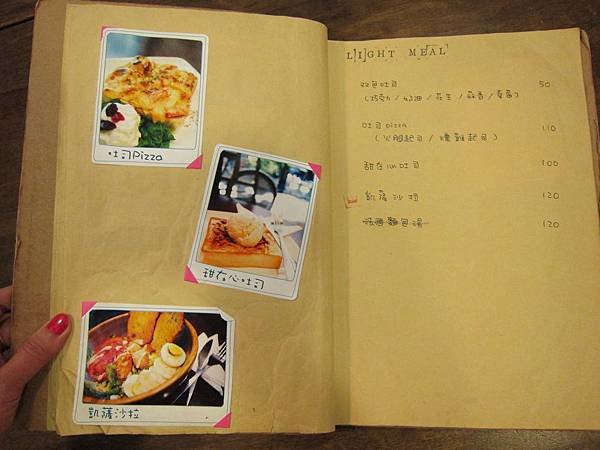 吐司Pizza
甜在心吐司
凱薩沙拉
LIGHT MEAL
吐司 50
(巧克力/奶油/花生/蒜香/草莓)
吐司pizza 110
(火腿起司/燻雞起司)
甜在心吐司 100
凱薩沙拉 120
法國麵包湯 120